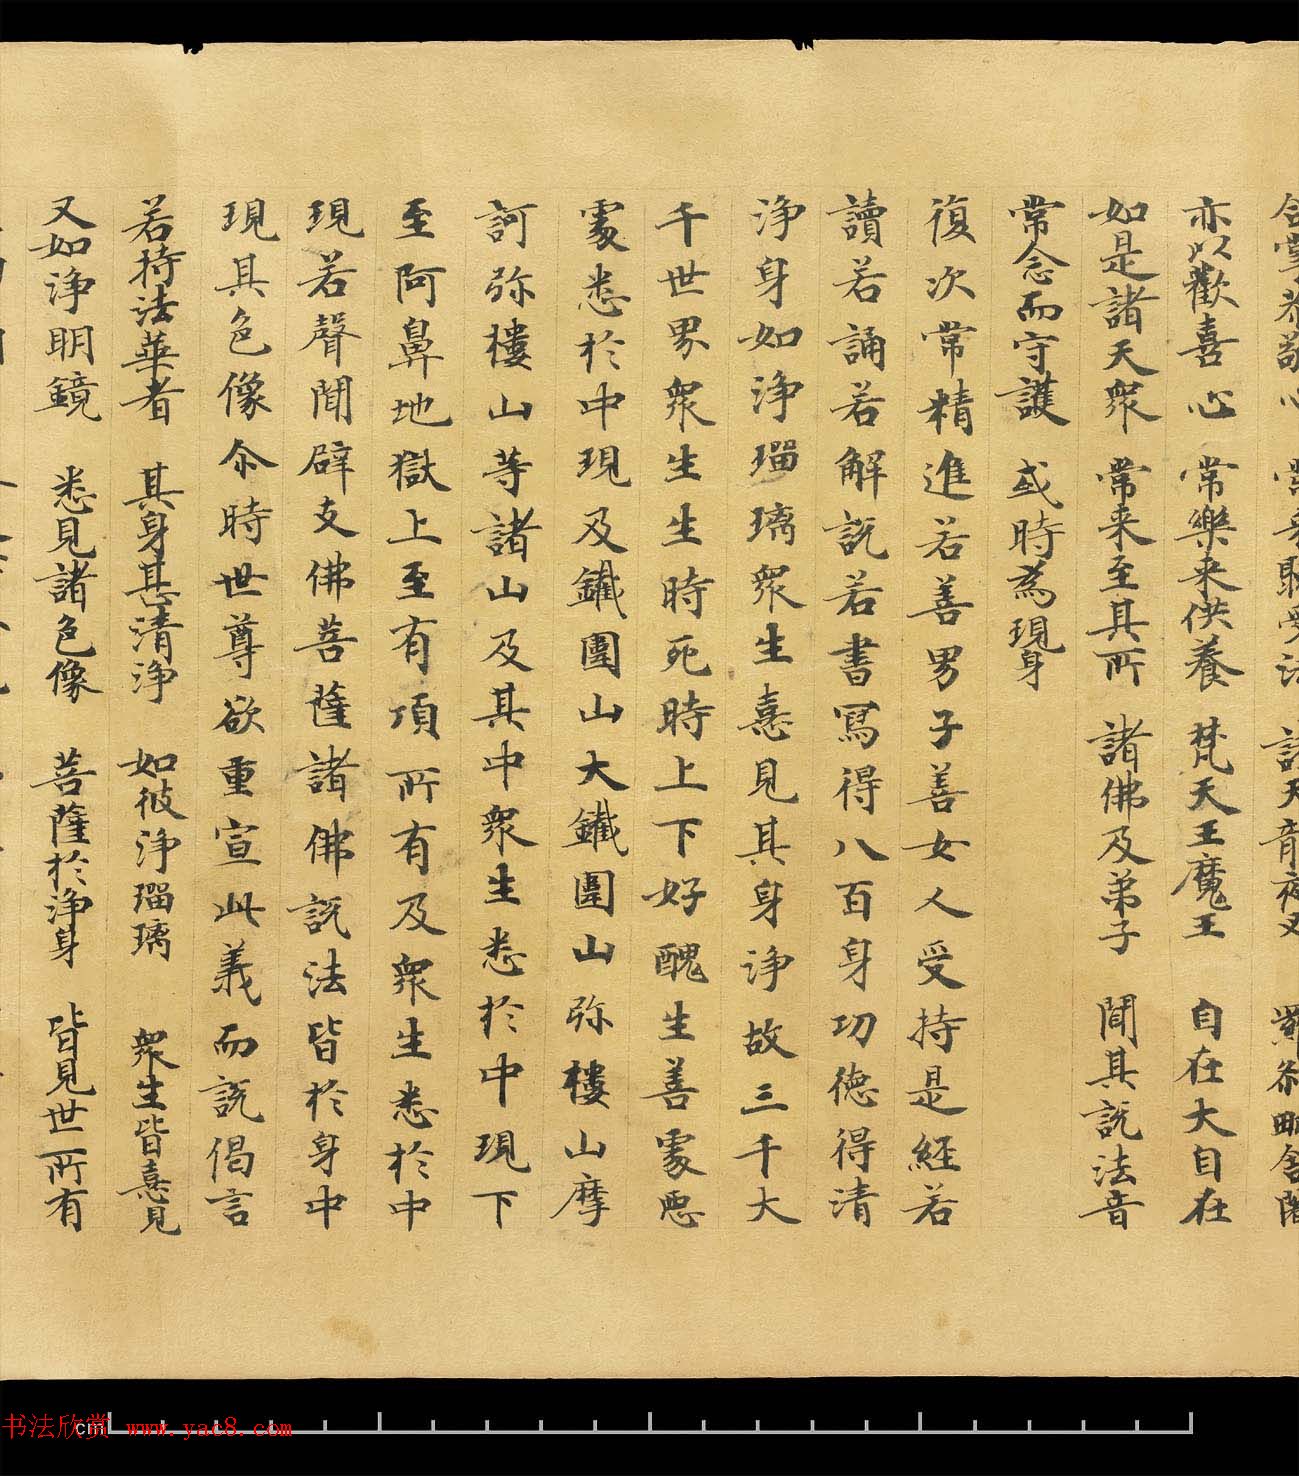 合掌恭敬心　常来聽受法　諸天龍夜叉　羅刹毗舍闍
亦以歡喜心　常樂来供養　梵天王魔王　自在大自在
如是諸天衆　常来至其所　諸佛及弟子　聞其説法音
常念而守護　或時為現身
復次常精進若善男子善女人受持是經若
讀若誦若解説若書寫得八百身功德得清
淨身如淨瑠璃衆生憙見其身淨故三千大
千世界衆生生時死時上下好醜生善處惡
處悉於中現及鐵圍山大鐵圍山弥樓山摩
訶弥樓山等諸山及其中衆生悉於中現下
至阿鼻地獄上至有頂所有及衆生悉於中
現若聲聞辟支佛菩薩諸佛説法皆於身中
現其色像尒時世尊欲重宣此義而説偈言
若持法華者　其身甚清淨　如彼淨瑠璃　衆生皆憙見
又如淨明鏡　悉見諸色像　菩薩於淨身　皆見世所有
书法欣赏 www.yac8.com
cm